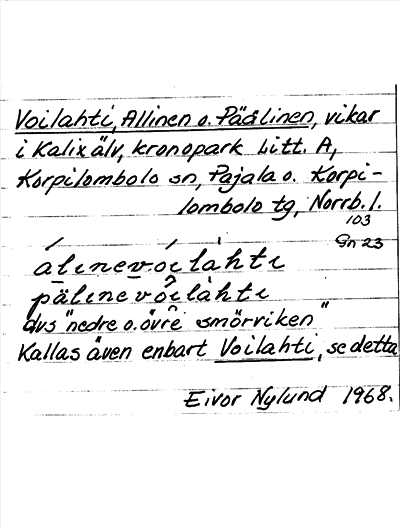 Voilahti, Allinen o. Päälinen, vikar
i Kalix älv, kronopark Litt. A,
Korpilombolo sn, Pajala o. Korpi-
lombolo tg, Norrb. l.
103
Gn 23
álinevòilàhti
pälinevòilàhti
dvs "nedre o. övre smörviken"
Kallas även enbart Voilahti, se detta
Eivor Nylund 1968.